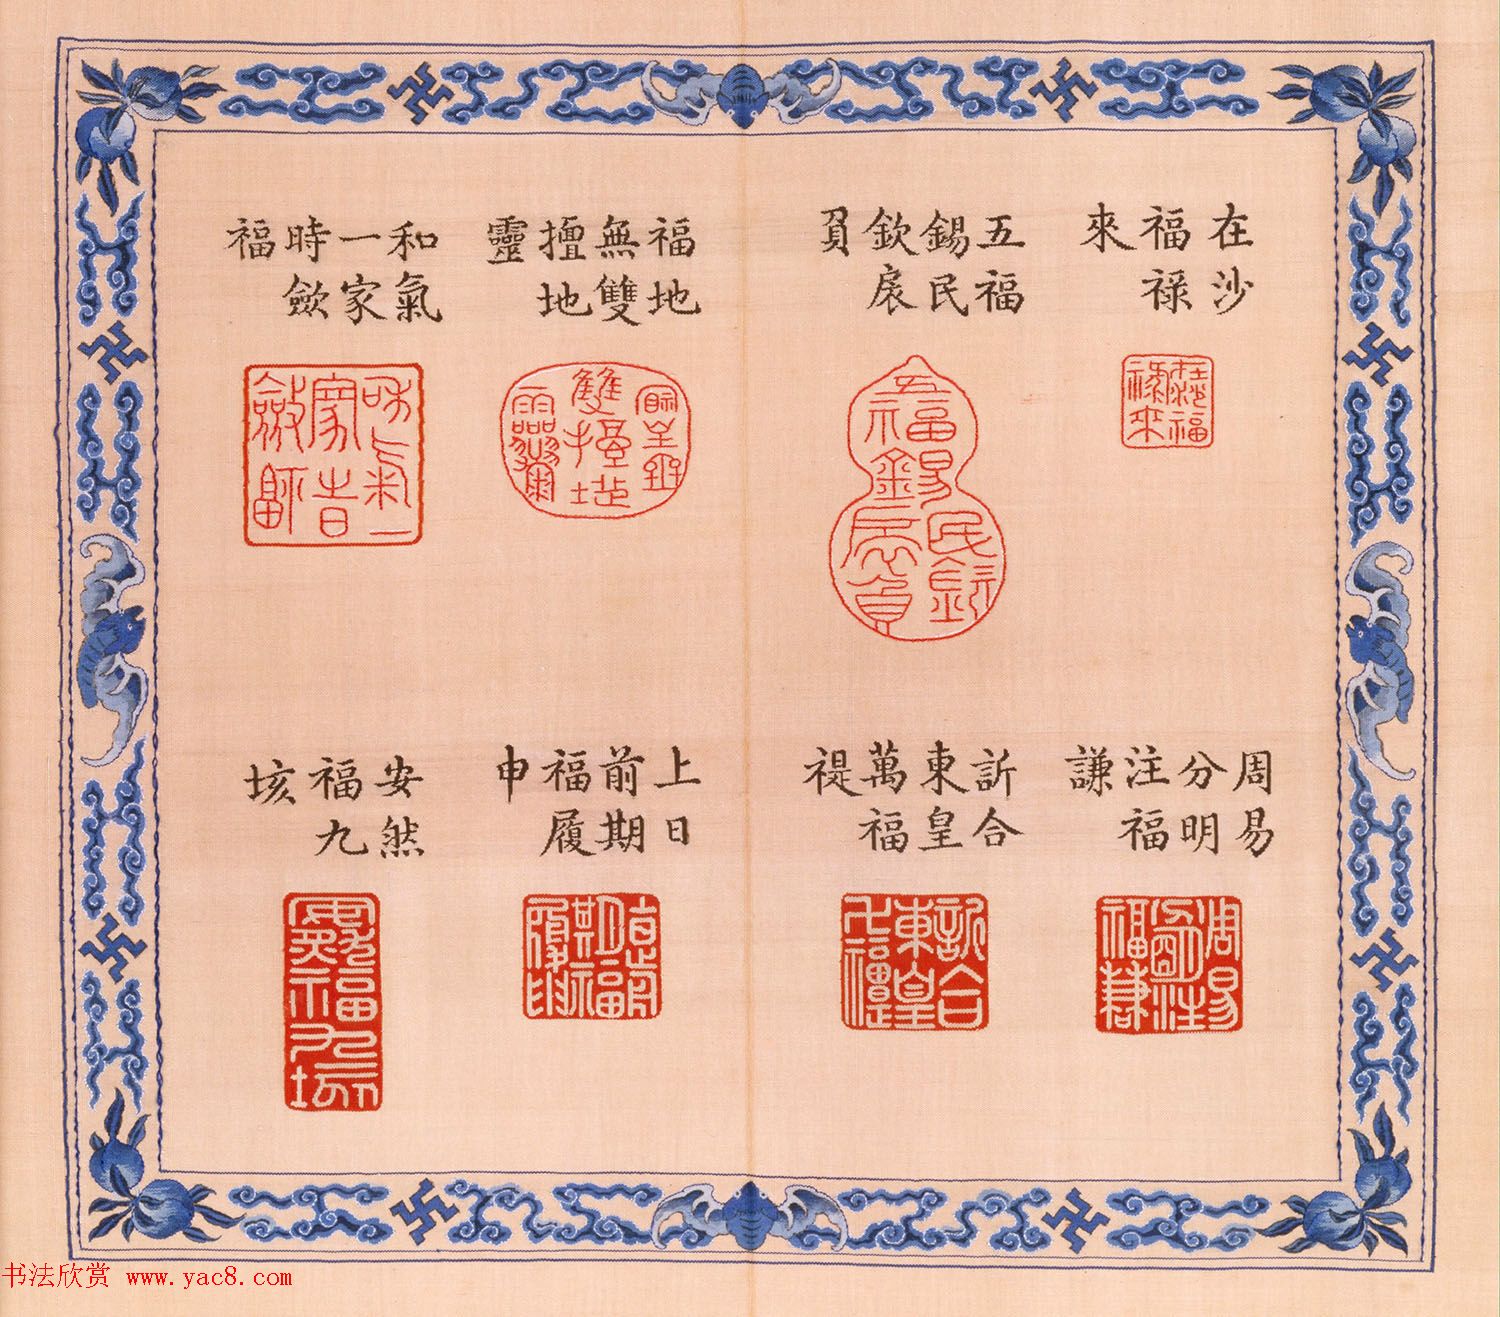 在沙
福禄
來
五福
錫民
欽扆
負
福地
無雙
擅地
靈
和氣
一家
時斂
福
周易
分明
注福
謙
訢合
東皇
萬福
禔
上日
前期
福履
申
安然
福九
垓
书法欣赏 www.yac8.com